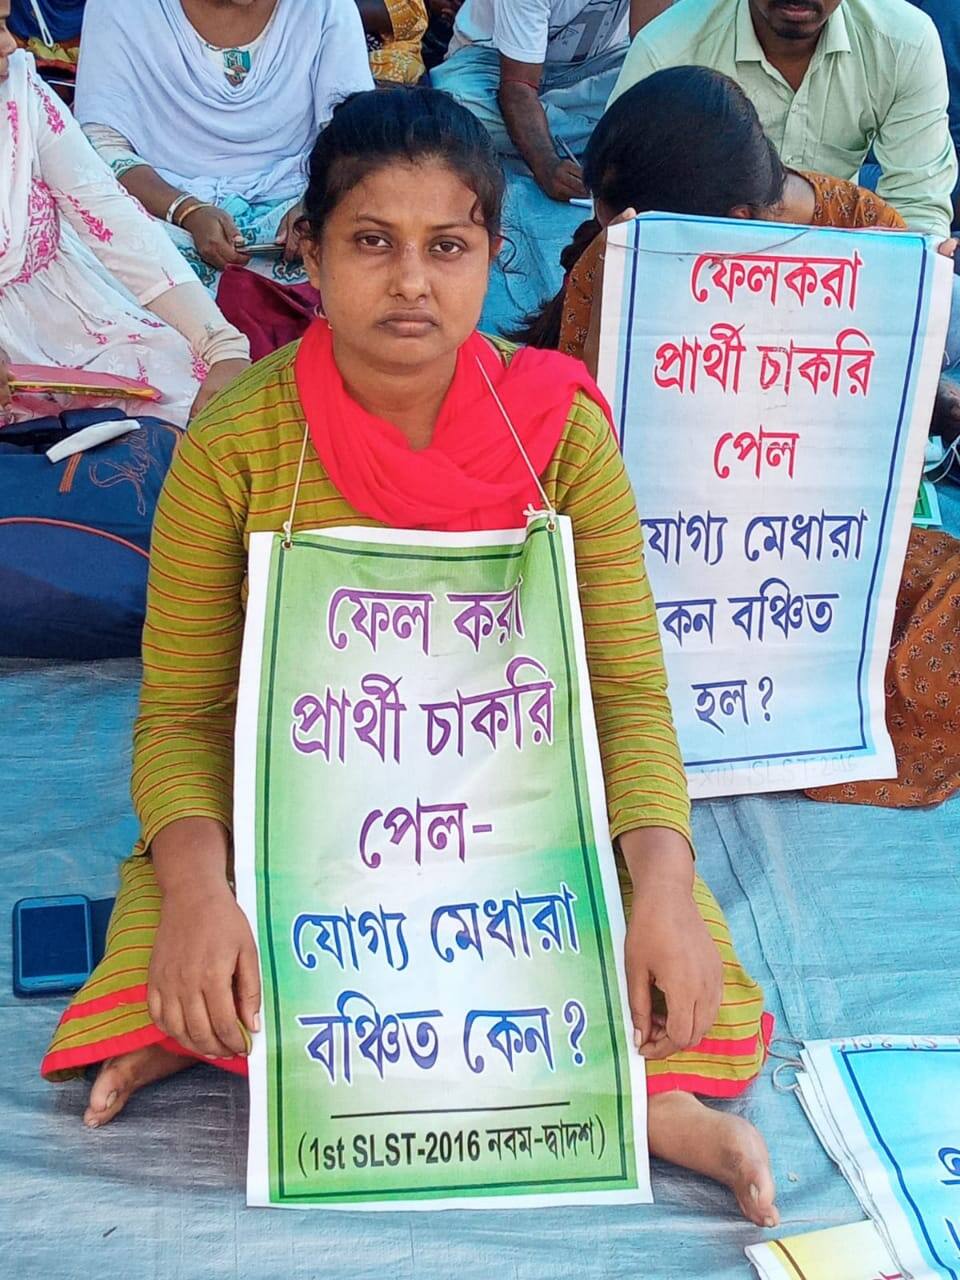 ফেল করা
প্রার্থী চাকরি
পেল-
যোগ্য মেধারা
বঞ্চিত কেন ?
(1st SLST-2016 নবম-দ্বাদশ)
ফেলকরা
প্রার্থী চাকরি
পেল
যোগ্য মেধারা
কেন বঞ্চিত
হল ?
SLST-2016